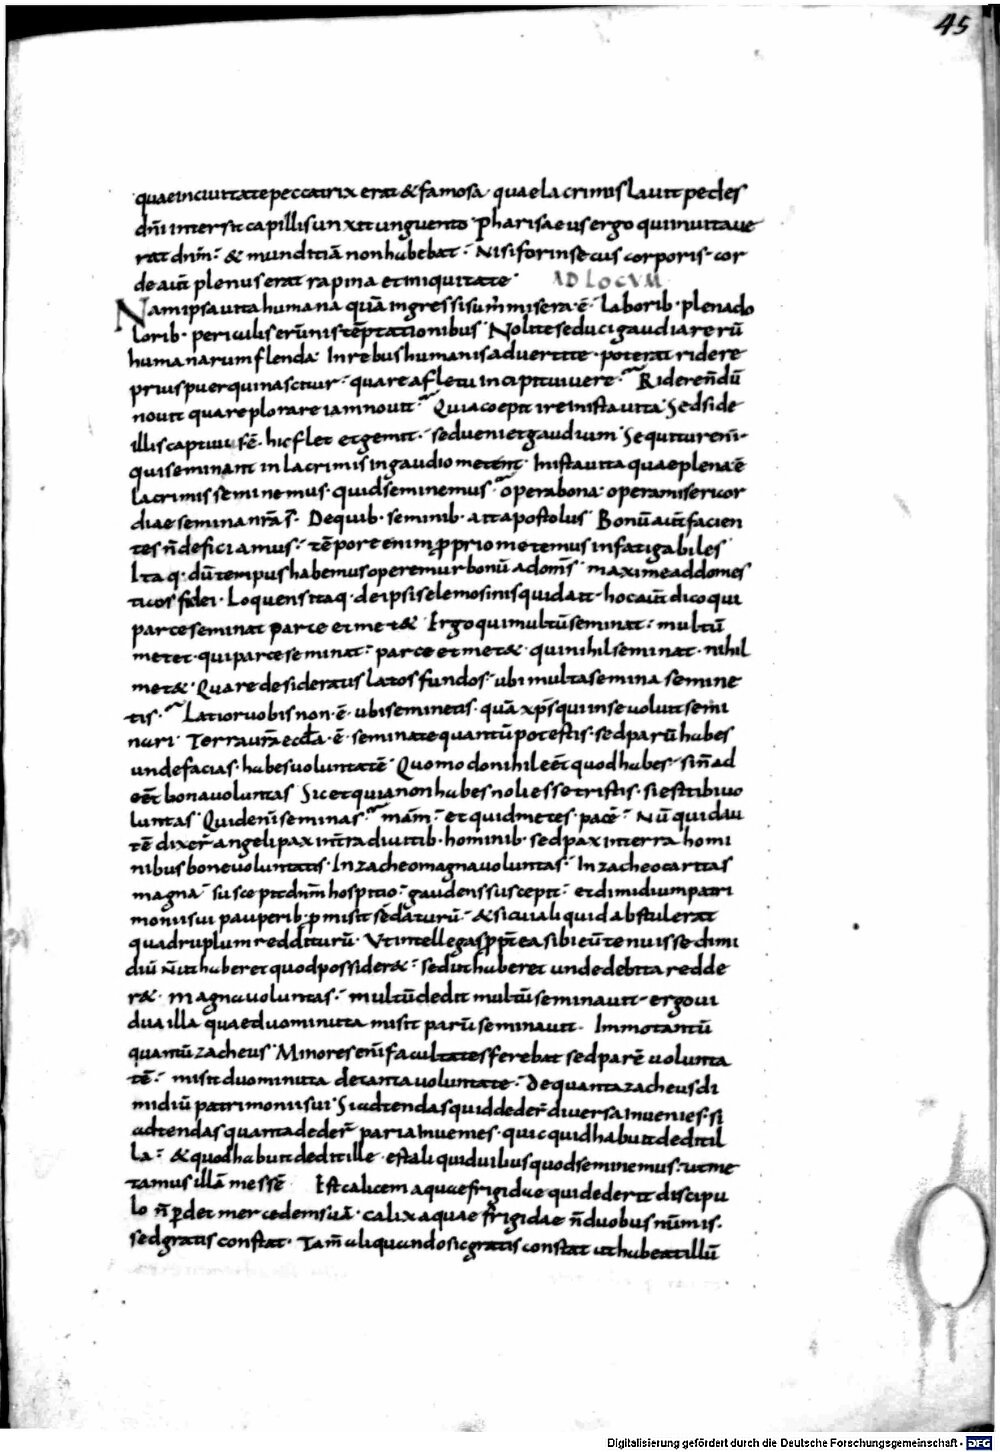 45
quae in ciuitate peccatrix erat & famosa quae lacrimis lauit pedes
dn̄i intersit capillis unxit unguento. Pharisaeus ergo qui inuitaue
rat dnm̄. & munditiā non habebat. Nisi forinsecus corporis. cor
de aut̄ plenus erat rapina et iniquitate. AD LOCVM
Nam ipsa uita humana quā ingressi sum̄ misera ē. laborib. plena do
lorib. periculis erūnis tēptationibus. Nolite seduci gaudia rerū
humanarum flenda. In rebus humanis aduertite. poterat ridere
prius puer qui nascitur. quare a fletu incipit uiuere. Ridere n̄dū
nouit quare plorare iam nouit. Quia coepit ire in ista uita. Sed si de
illis captiuis ē. hic flet et gemit. sed ueniet gaudium. Sequitur eni.
qui seminant in lacrimis in gaudio metent. In ista uita quae plena ē
lacrimis seminemus. quid seminemus. opera bona. opera misericor
diae semina nr̄a s̄. De quib. seminib. ait apostolus. Bonū aut̄ facien
tes n̄ deficiamus. tēpore enim proprio metemus infatigabiles
Ita q. dū tempus habemus operemur bonū ad om̄s. maxime ad domes
ticos fidei. Loquens itaq. de ipsis elemosinis quid ait. hoc aut̄ dico qui
parce seminat parce et met&. Ergo qui multū seminat. multū
metet. qui parce seminat. parce et met&. qui nihil seminat. nihil
met&. Quare desideratis latos fundos. ubi multa semina semine
tis. Latior uobis non. ē. ubi seminetis. quā xp̄s qui in se uoluit semi
nari. Terra ur̄a eccła. ē. seminate quantū potestis. sed parū habes
unde facias. habes uoluntatē. Quomodo nihil eēt quod habes. si n̄ ad
eēt bona uoluntas. Sic et quia non habes noli esse tristis. si est tibi uo
luntas. Quid eni seminas. mām̄. et quid metes. pacē. Nū quid diui
tē dixer̄ angeli pax in tr̄a diuitib. hominib. sed pax in terra homi
nibus bone uoluntatis. In zacheo magna uoluntas. In zacheo caritas
magna. suscepit dnm̄ hospitio. gaudens suscepit. et dimidium patri
monii sui pauperib. p̄misit se daturū. & si cui aliquid abstulerat
quadruplum redditurū. Ut intellegas propterea sibi eū tenuisse dimi
diū n̄ ut haberet quod possider&. sed ut haberet unde debita redde
r&. magna uoluntas. multū dedit multū seminauit. ergo ui
dua illa quae duo minuta misit parū seminauit. Immo tantū
quantū zacheus. Minores eni facultates ferebat sed parē uolunta
tē. misit duo minuta de tanta uoluntate. de quanta zacheus di
midiū patrimonii sui. Si adtendas quid deder̄ diuersa inuenies. si
adtendas quanta deder̄ paria inuenies. quicquid habuit dedit il
la. & quod habuit dedit ille. est aliquid uilius quod seminemus. ut me
tamus illā messē. Est calicem aquae frigidae qui dederit discipu
lo n̄ p̄det mercedem suā. calix aquae frigidae n̄ duobus nūmis.
sed gratis constat. Tam̄ aliquando sic gratis constat ut habeat illū
Digitalisierung gefördert durch die Deutsche Forschungsgemeinschaft - DFG